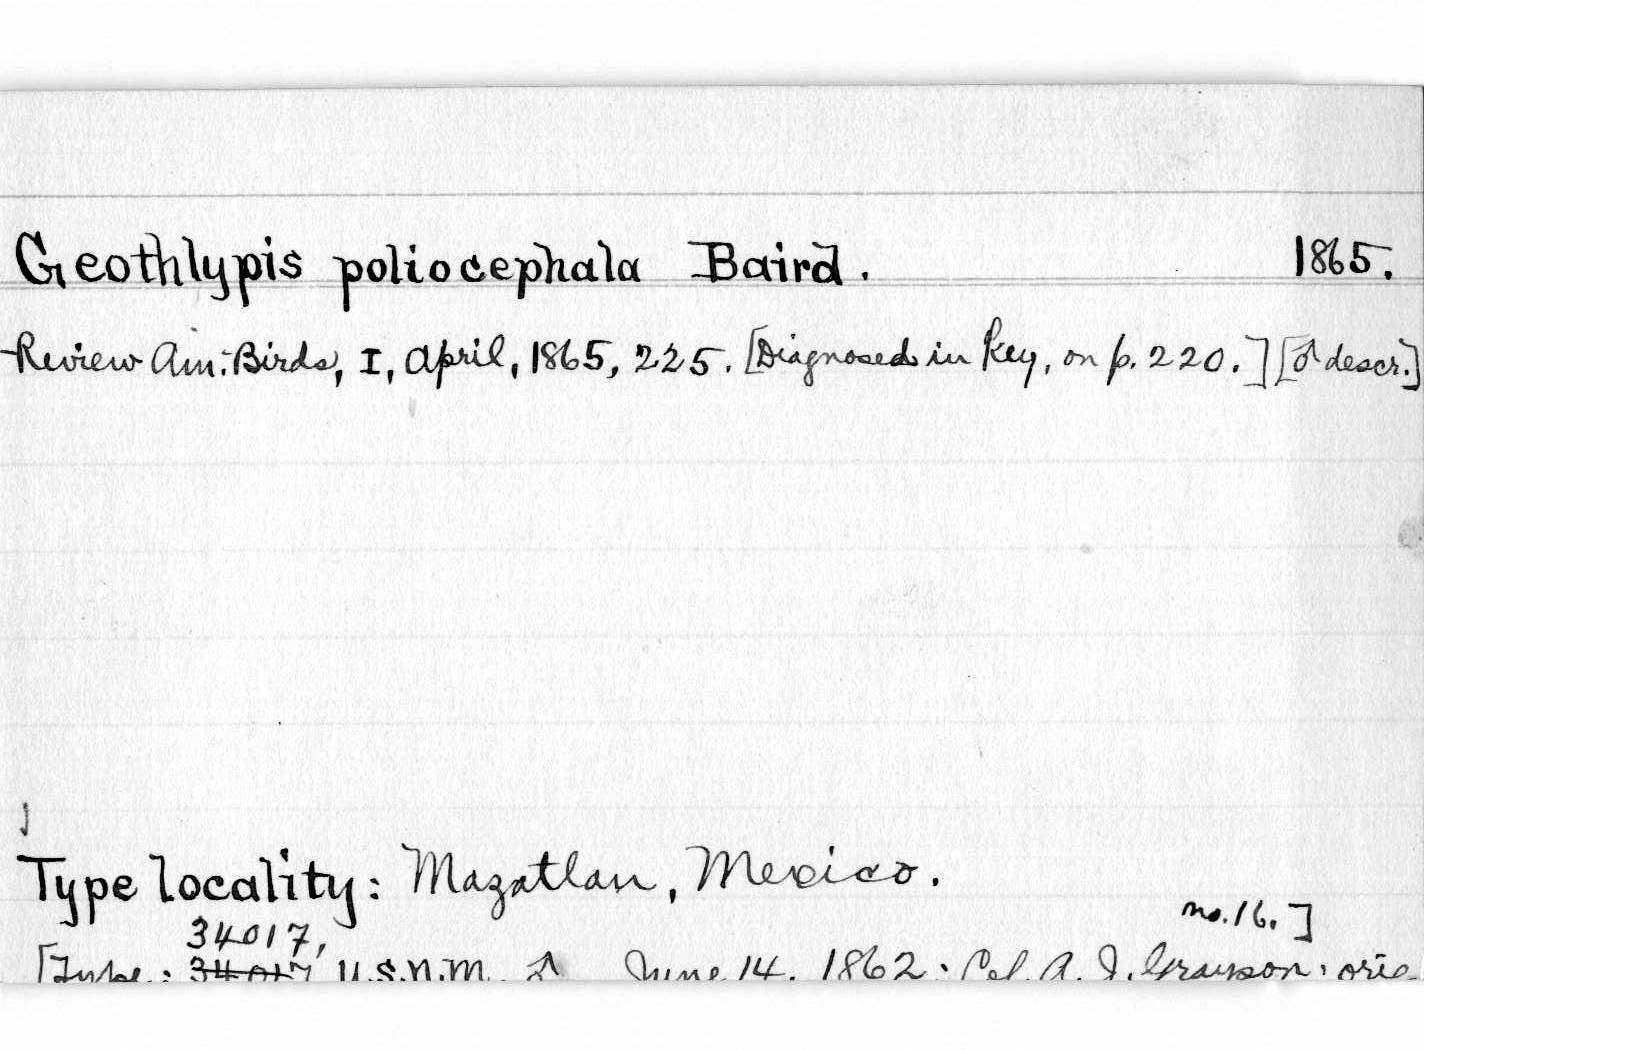 Geothlypis poliocephala Baird. 1865.
Review Am. Birds, I, April, 1865, 225. [Diagnosed in key, on p. 220.] [♂ descr.]
Type locality: Mazatlan, Mexico.
34017, no. 16.]
[Type: 34017 U.S.N.M. ♂ June 14, 1862; Col. A. J. Grayson; orig.